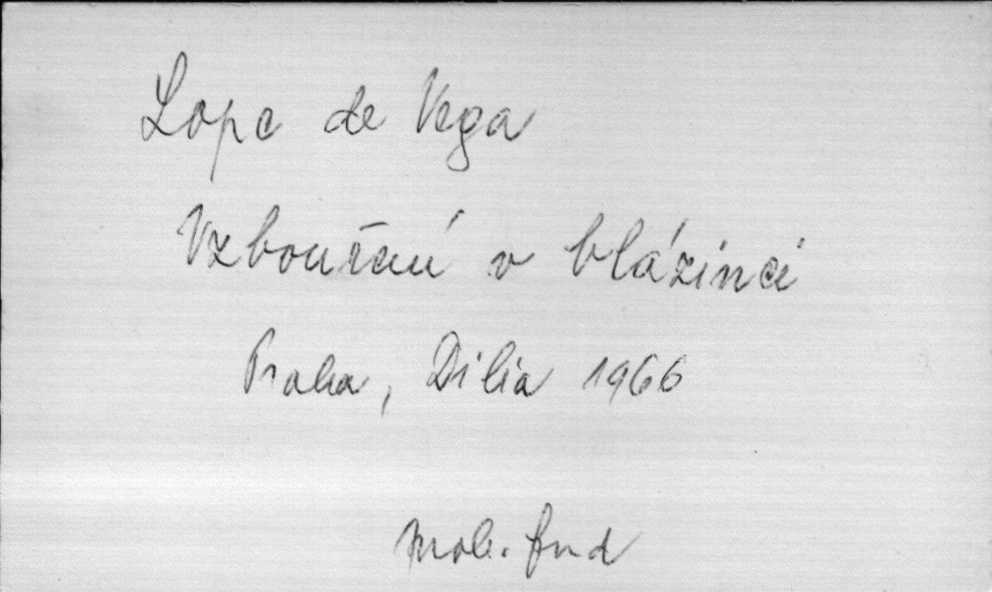 Lope de Vega
Vzbouření v blázinci
Praha, Dilia 1966
mob. fnd